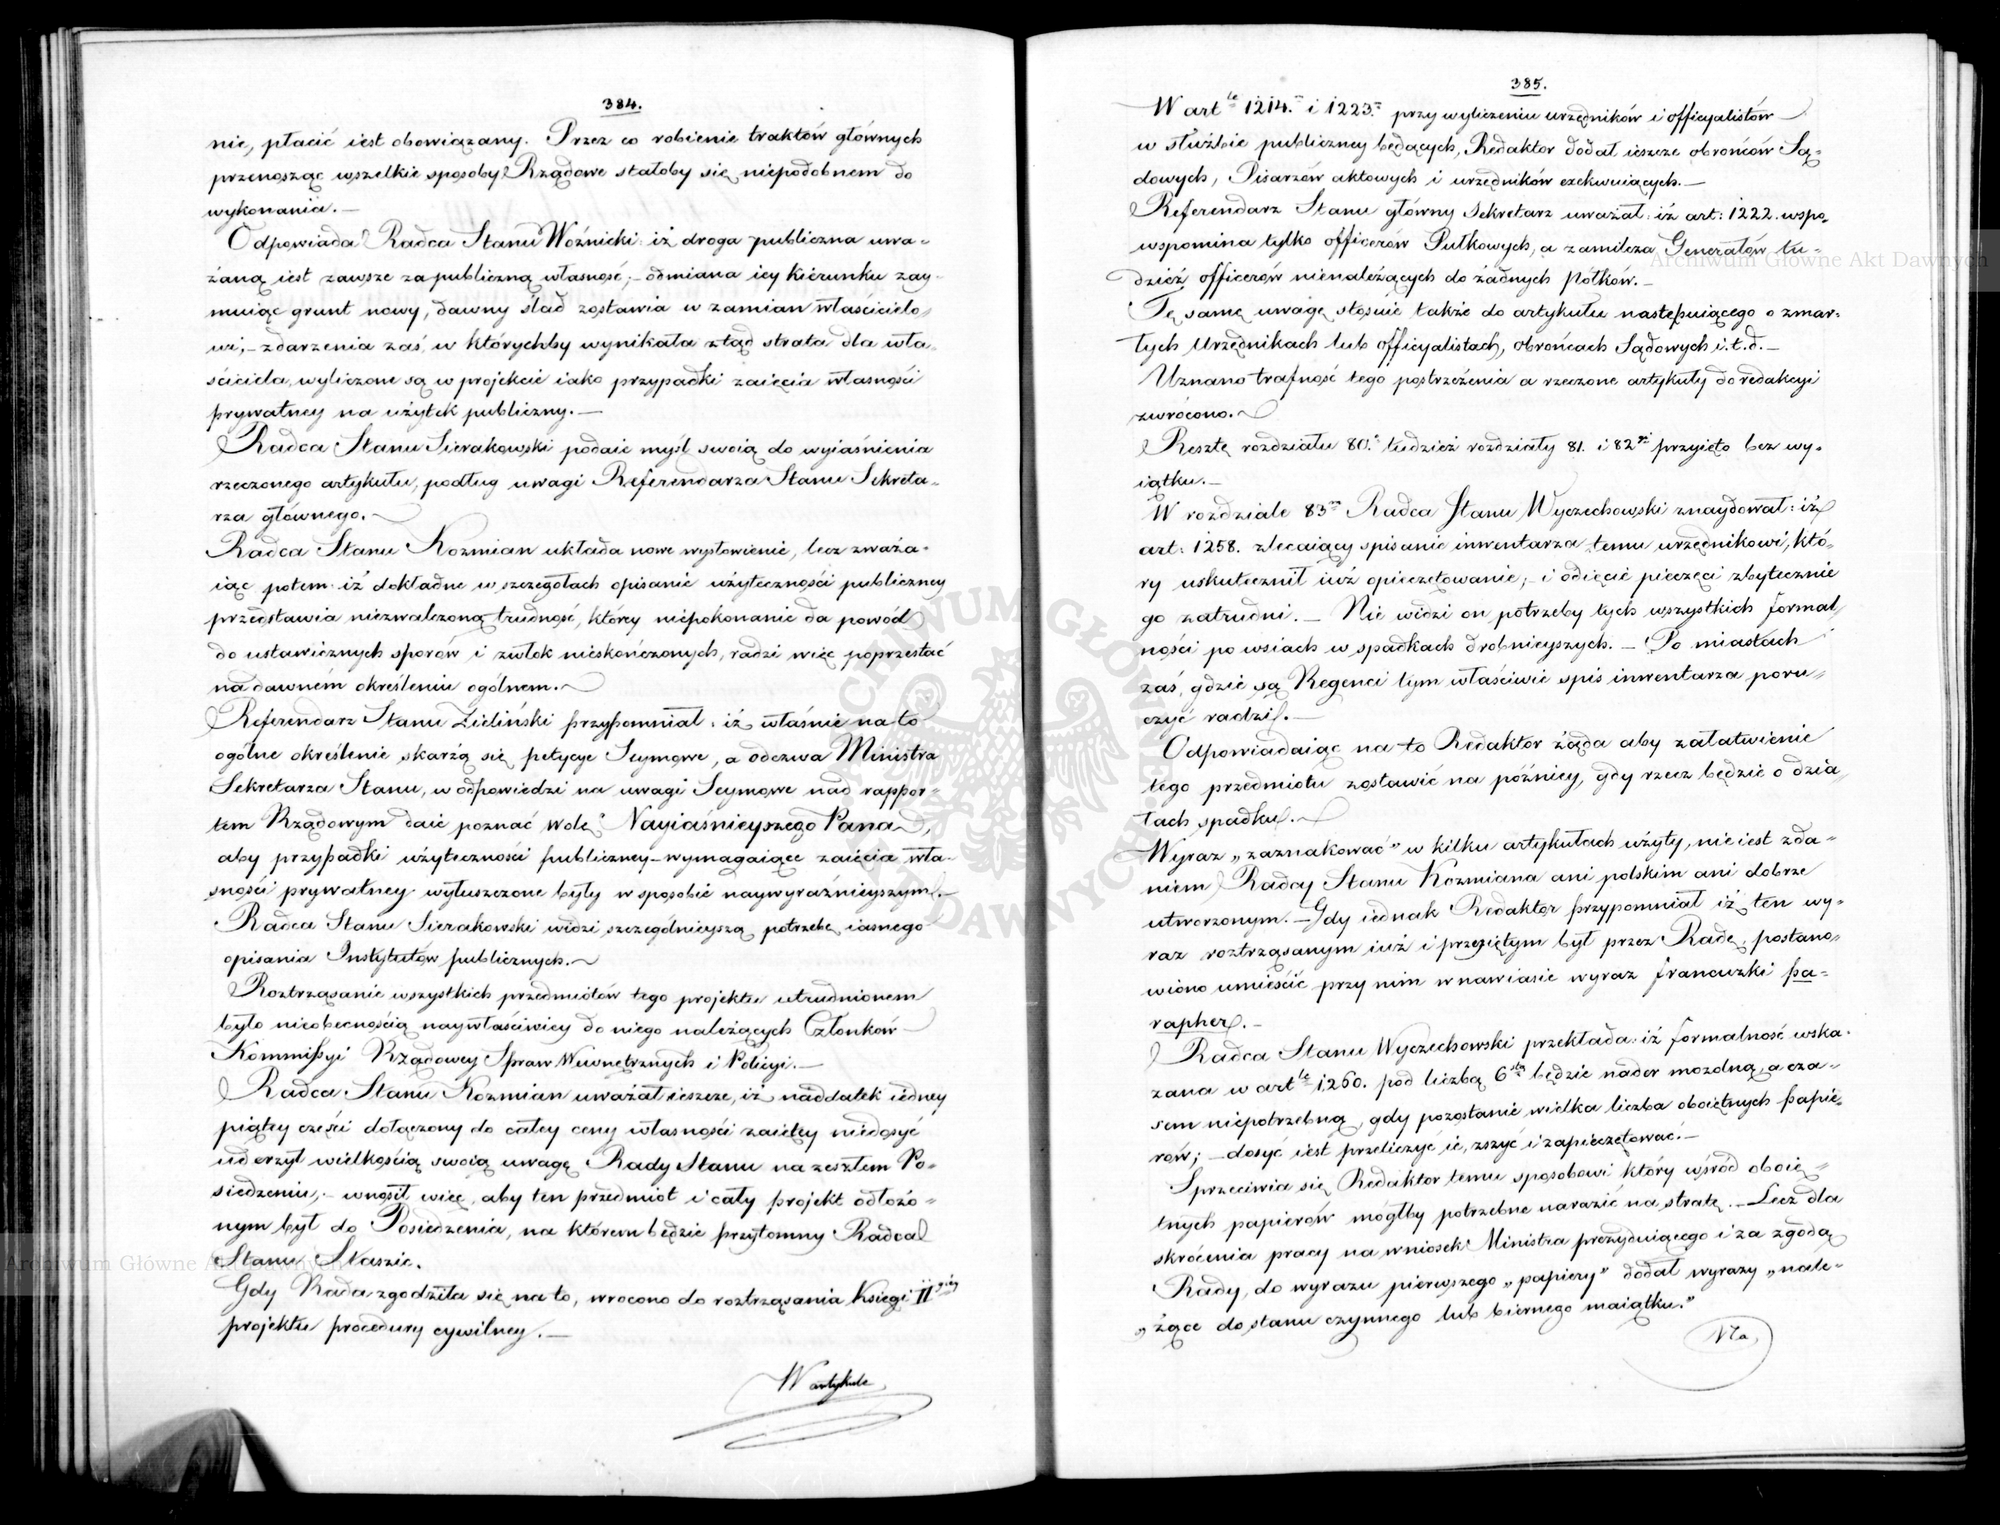 384.
nie, płacić iest obowiązany. Przez co robienie traktów głównych
przenosząc wszelkie sposoby Rządowe stałoby się niepodobnem do
wykonania.—
Odpowiada Radca Stanu Woźnicki: iż droga publiczna uwa-
żaną iest zawsze za publiczną własność;- odmiana iey kierunku zay-
muiąc grunt nowy, dawny ślad zostawia w zamian właścicielo-
wi,- zdarzenia zaś, w którychby wynikała ztąd strata dla wła-
ściciela, wyliczone są w projekcie iako przypadki zaięcia własności
prywatney na użytek publiczny.—
Radca Stanu Sierakowski podaie myśl swoią do wyiaśnienia
rzeczonego artykułu, podług uwagi Referendarza Stanu Sekreta-
rza głównego.
Radca Stanu Kozmian układa nowe wysłowienie, lecz zważa-
iąc potem iż dokładne w szczegółach opisanie użyteczności publiczney
przedstawia niezwalczoną trudność, którey niepokonanie da powód
do ustawicznych sporów i zwłok nieskończonych, radzi więc poprzestać
na dawném określeniu ogólnem.
Referendarz Stanu Zieliński przypomniał, iż właśnie na to
ogólne określenie skarżą się petycye Seymowe, a odezwa Ministra
Sekretarza Stanu, w odpowiedzi na uwagi Seymowe nad rappor-
tem Rządowym daie poznać Wolę Nayiaśnieyszego Pana,
aby przypadki użyteczności publiczney wymagaiące zaięcia wła-
sności prywatney wyłuszczone były w sposobie naywyraźnieyszym.—
Radca Stanu Sierakowski widzi szczególnieyszą potrzebę iasnego
opisania Instytutów publicznych.
Roztrząsanie wszystkich przedmiotów tego projektu utrudnionem
było nieobecnością naywłaściwiey do niego należących Członków
Kommissyi Rządowey Spraw Wewnętrznych i Policyi.—
Radca Stanu Kozmian uważał ieszcze, iż naddatek iedney
piątey części dołączony do całey ceny własności zaiętey niedosyć
uderzył wielkością swoią uwagę Rady Stanu na zeszłem Po-
siedzeniu,- wnosił więc, aby ten przedmiot i cały projekt odłożo-
nym był do Posiedzenia, na którem będzie przytomny Radca
Stanu Staszic.
Gdy Rada zgodziła się na to, wrócono do roztrząsania Księgi IIgiéy
projektu procedury cywilney.—
W artykule
385.
W artle 1214.m i 1223m przy wyliczeniu urzędników i officyalistów
w służbie publiczney będących, Redaktor dodał ieszcze obrońców Są-
dowych, Pisarzów aktowych i urzędników exekwuiących.—
Referendarz Stanu główny Sekretarz uważał: iż art: 1222. wspo-
wspomina tylko officerów Pułkowych, a zamilcza Generałów tu-
dzież officerów nienależących do żadnych Półków.—
Tę samę uwagę stosuie także do artykułu następuiącego o zmar-
łych Urzędnikach lub officyalistach, obrońcach Sądowych i.t.d.—
Uznano trafność tego postrzeżenia a rzeczone artykuły do redakcyi
zwrócono.
Resztę rozdziału 80.o tudzież rozdziały 81. i 82gi przyięto bez wy-
iątku.—
W rozdziale 83m Radca Stanu Wyczechowski znaydował: iż
art: 1258. zlecaiący spisanie inwentarza temu urzędnikowi, któ-
ry uskutecznił iuż opieczętowanie,- i odięcie pieczęci zbytecznie
go zatrudni.— Nie widzi on potrzeby tych wszystkich formal-
ności po wsiach w spadkach drobnieyszych.— Po miastach
zaś, gdzie są Regenci tym właściwie spis inwentarza poru-
czyć radzi.—
Odpowiadaiąc na to Redaktor żąda aby załatwienie
tego przedmiotu zostawić na późniey, gdy rzecz będzie o dzia-
łach spadku.
Wyraz „zaznakować" w kilku artykułach użyty, nie iest zda-
niem Radcy Stanu Kozmiana ani polskim ani dobrze
utworzonym.— Gdy iednak Redaktor przypomniał iż ten wy-
raz roztrząsanym iuż i przyiętym był przez Radę, postano-
wiono umieścić przy nim w nawiasie wyraz francuzki pa-
rapher.—
Radca Stanu Wyczechowski przekłada: iż formalność wska-
zana w artle 1260. pod liczbą 6stą będzie nader mozolną, a cza-
sem niepotrzebną, gdy pozostanie wielka liczba oboiętnych papie-
rów;- dosyć iest przeliczyć ie, zszyć i zapieczętować.—
Sprzeciwia się Redaktor temu sposobowi, który wśród oboię-
tnych papierów mógłby potrzebne narazić na stratę.— Lecz dla
skrócenia pracy na wniosek Ministra prezyduiącego i za zgodą
Rady, do wyrazu pierwszego „papiery" dodał wyrazy „nale-
„żące do stanu czynnego lub biernego maiątku."
Na
Archiwum Główne Akt Dawnych
Archiwum Główne Akt Dawnych
ARCHIWUM GŁÓWNE AKT DAWNYCH